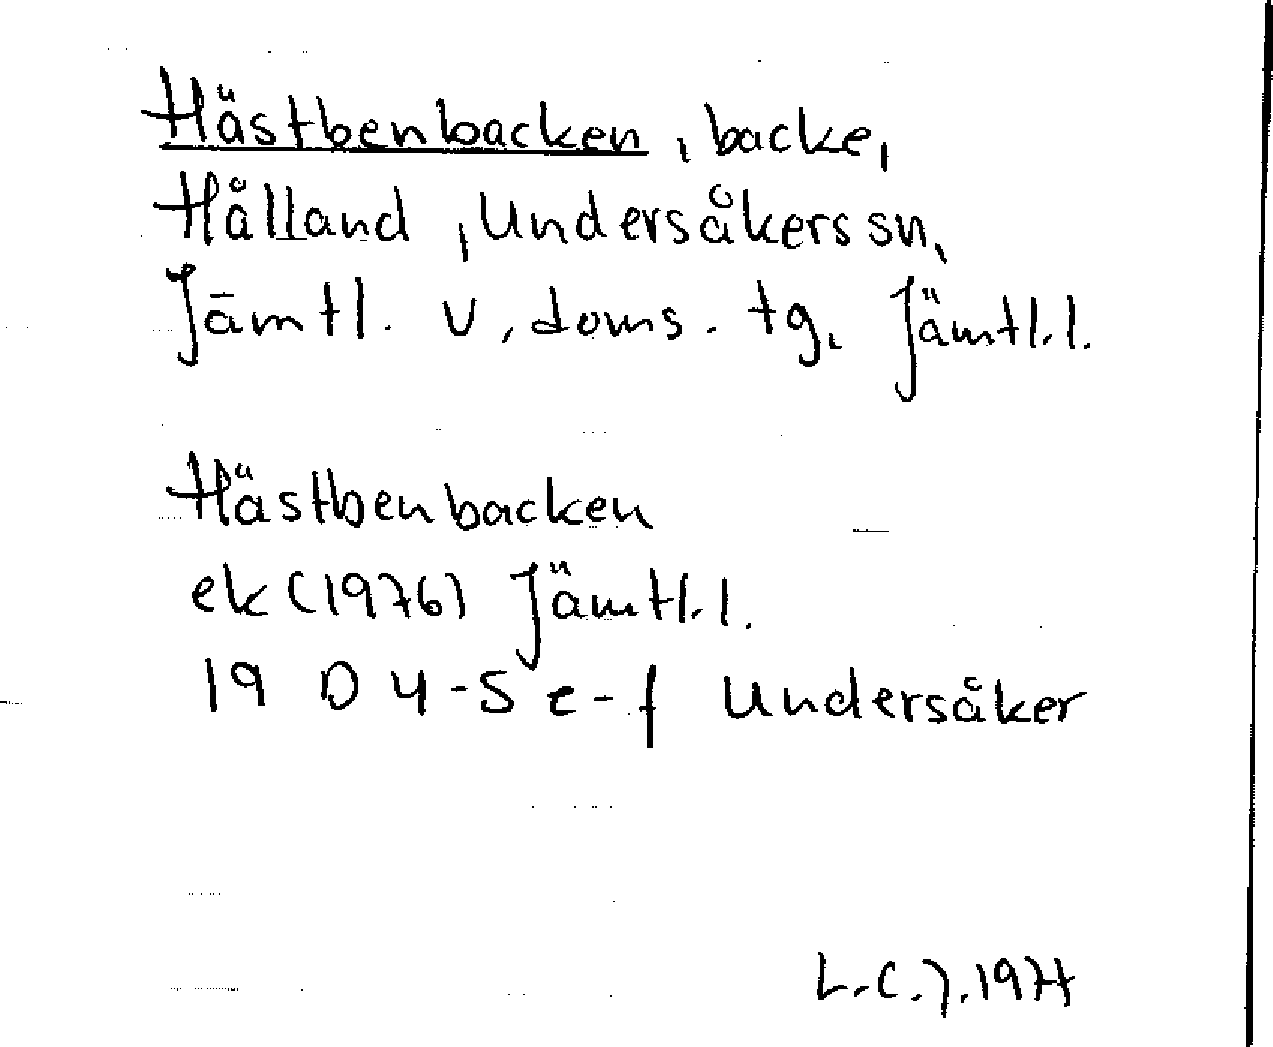 Hästbenbacken, backe,
Hålland, Undersåkers sn,
Jämtl. v, doms. tg. Jämtl. l.
Hästbenbacken
ek (1976) Jämtl. l.
19 D 4-5 e-f Undersåker
L.C.J. 1977